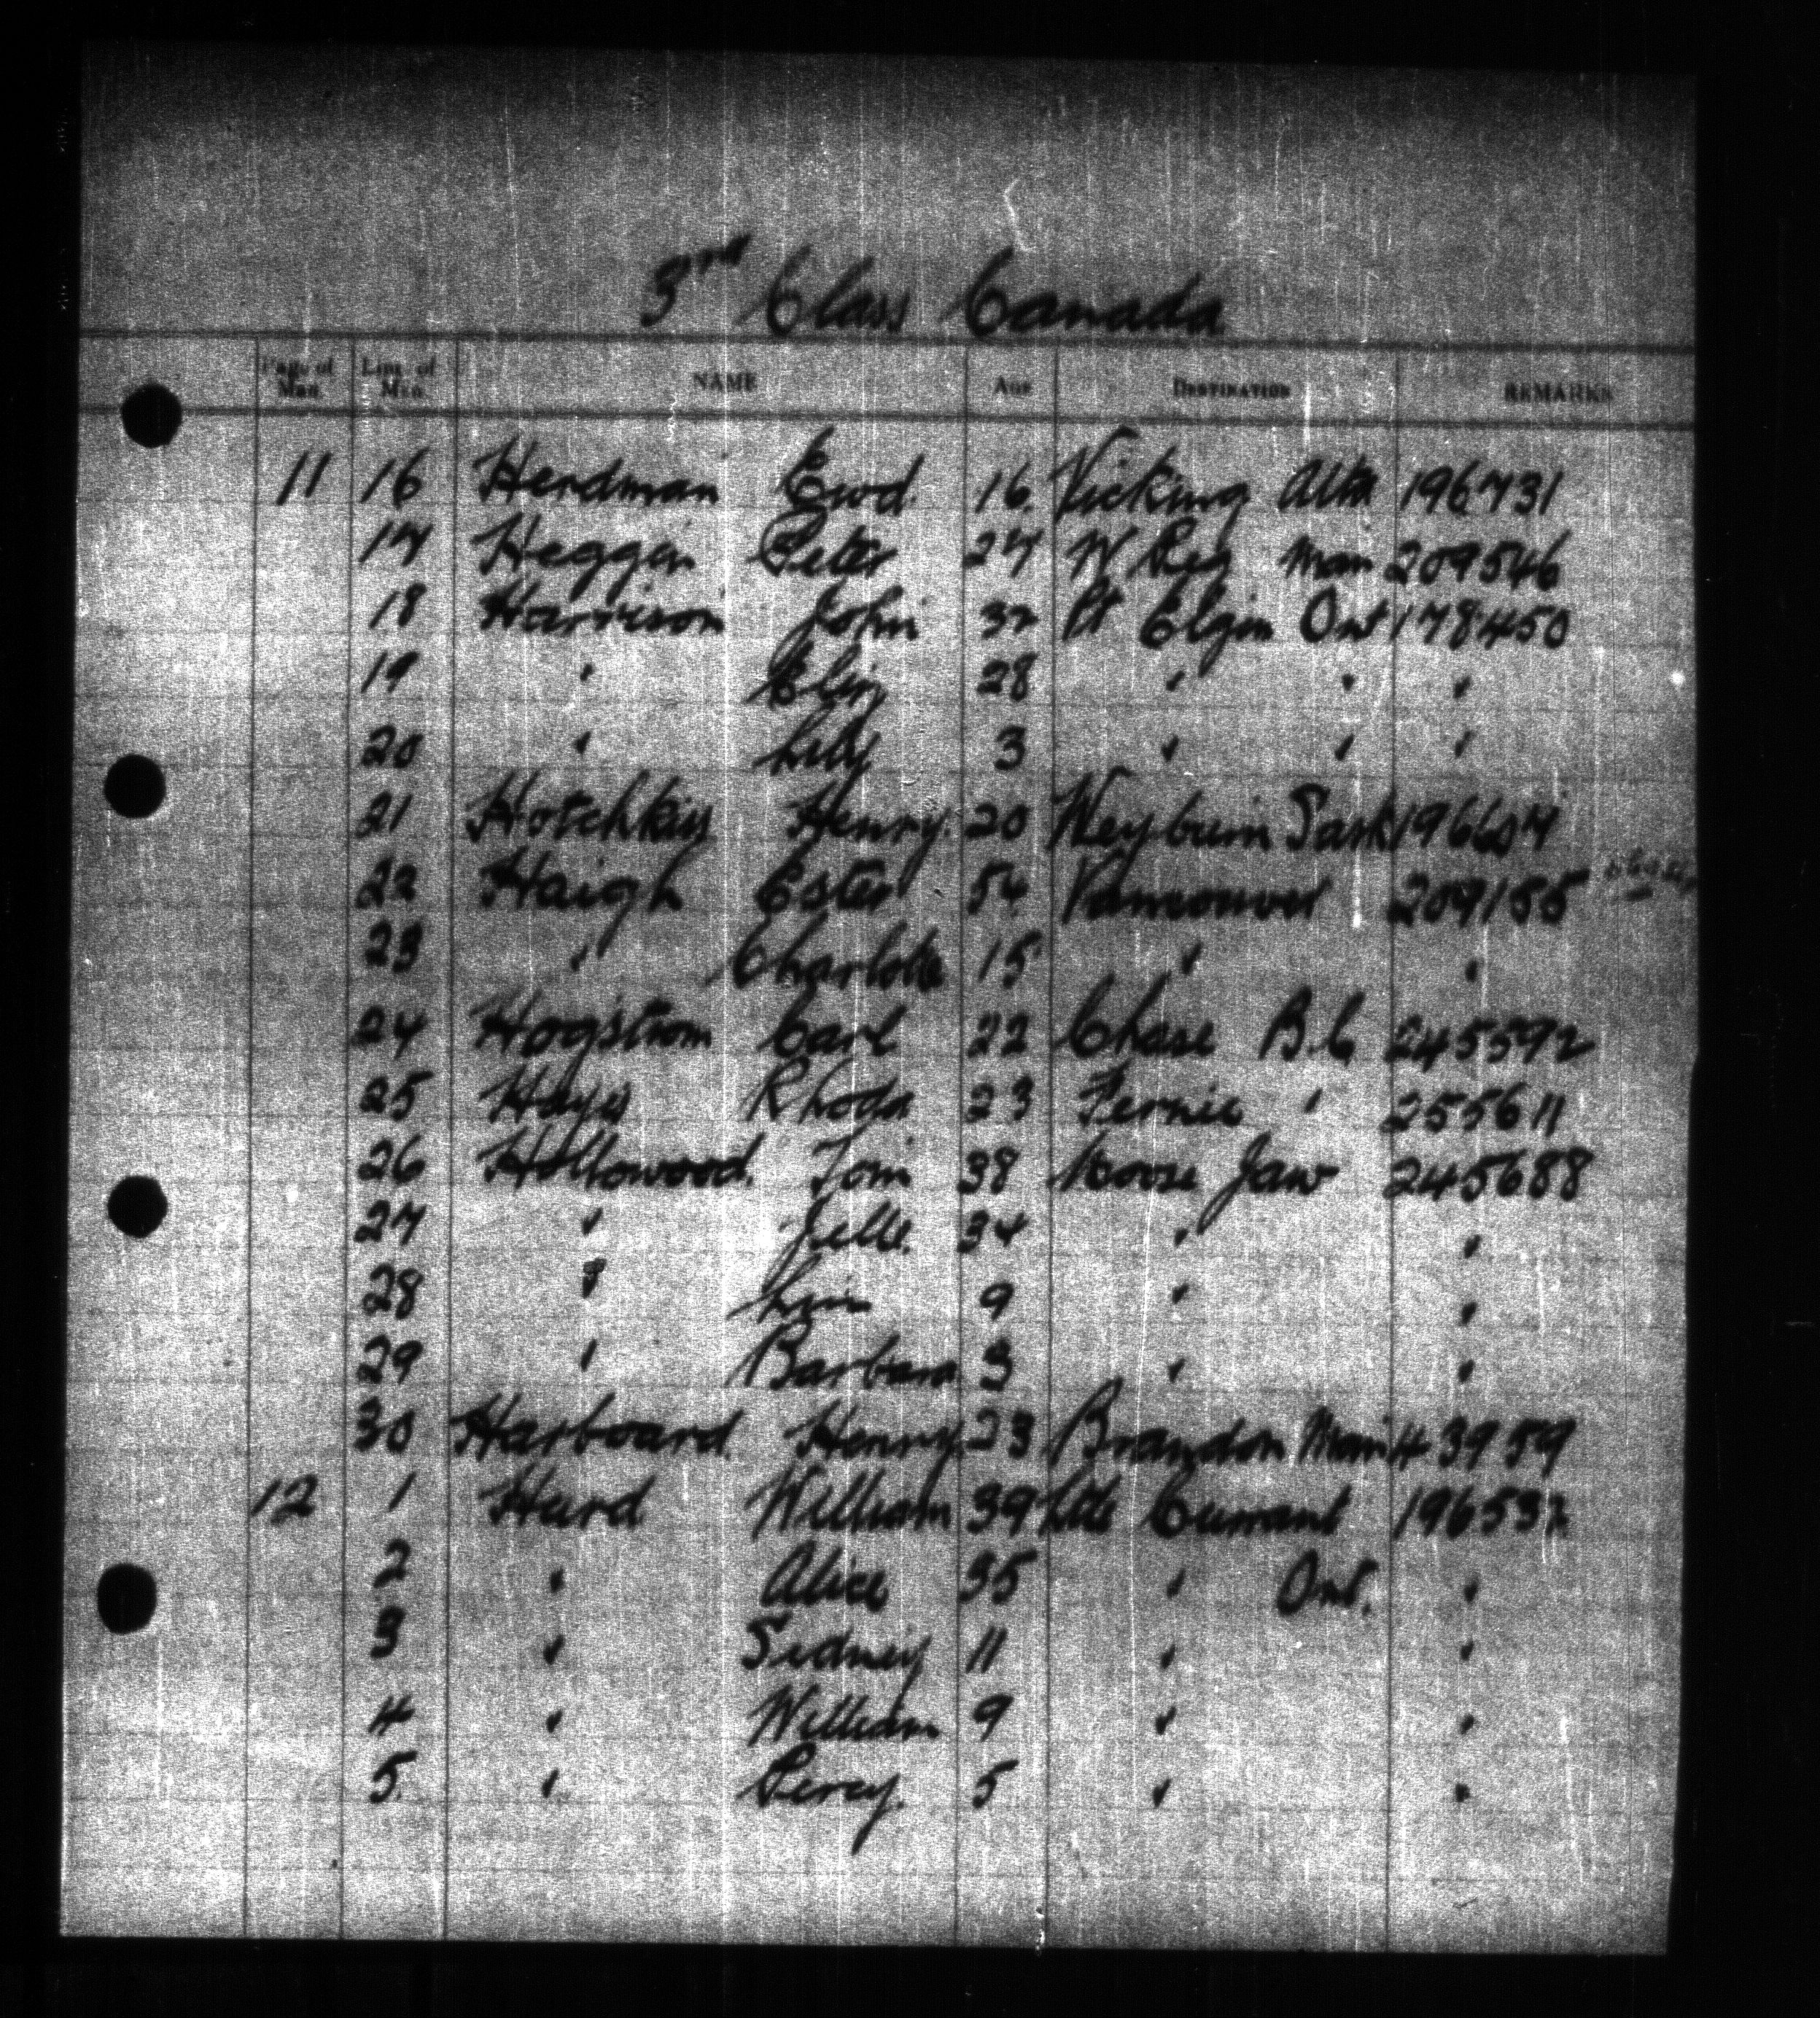 3rd Class Canada
Page of Man. Line of Man. NAME AGE DESTINATION REMARKS
11 16 Herdman Ewd. 16. Vicking Alta 196731
17 Heggen Peter 27 Wpeg Man 209546
18 Harrison John 32 Pt Elgin Ont 178450
19 " Eliz 28 " " "
20 " Lily 3 " " "
21 Hotchkiss Henry. 20 Weyburn Sask
22 Haigh Ester 54 Vancouver 209155
23 " Charlotte 15 " "
24 Hogstrom Carl 22 Chase B.C 245592
25 Hays Rhoda 23 Fernie " 255611
26 Hollowood. Tom 38 Moose Jaw 245688
27 " 34 " "
28 " 9 " "
29 " Barbara 3 " "
30 Harboard. Henry 23 Brandon Man 43959
12 1 Hurd William 39 Little Currant 196532
2 " Alice 35 " Ont. "
3 " Sidney 11 " "
4 " William 9 " "
5. " Percy. 5 " "